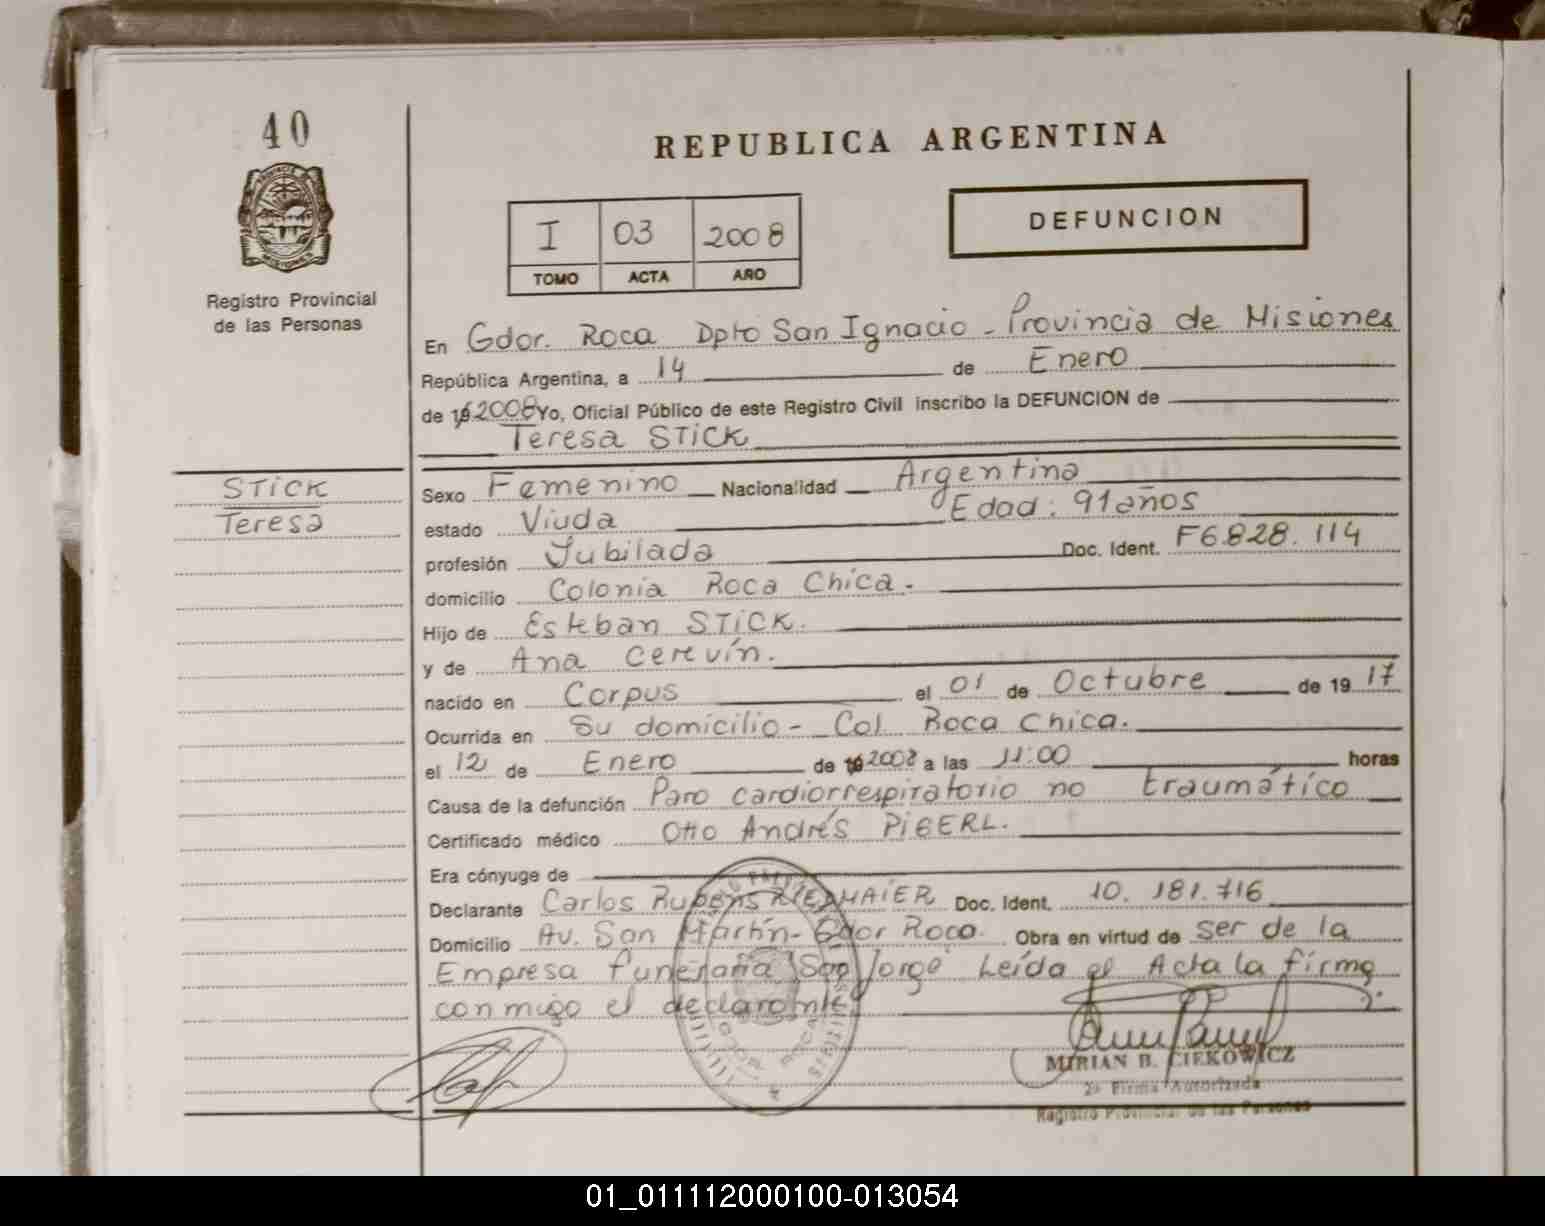 40
REPUBLICA ARGENTINA
I 03 2008
TOMO ACTA AÑO
DEFUNCION
Registro Provincial
de las Personas
En Gdor. Roca Dpto San Ignacio - Provincia de Misiones
República Argentina, a 14 de Enero
de 19 2008 Yo, Oficial Público de este Registro Civil inscribo la DEFUNCION de
Teresa STICK
STICK
Teresa
Sexo Femenino Nacionalidad Argentina
estado Viuda Edad: 91 años
profesión Jubilada Doc. Ident. F6.828.114
domicilio Colonia Roca Chica.
Hijo de Esteban STICK.
y de Ana Cerevín.
nacido en Corpus el 01 de Octubre de 19 17
Ocurrida en Su domicilio - Col Roca Chica.
el 12 de Enero de 19 2008 a las 11:00 horas
Causa de la defunción Paro cardiorrespiratorio no traumático
Certificado médico Otto Andrés PIGERL.
Era cónyuge de
Declarante Carlos Rubens Doc. Ident. 10.181.716
Domicilio Av. San Martín - Gdor Roca. Obra en virtud de ser de la
Empresa funeraria "San Jorge" Leída el Acta la firma
conmigo el declarante.
MIRIAN B. CIEKOWICZ
2ª Firma Autorizada
Registro Provincial de las Personas
01_011112000100-013054